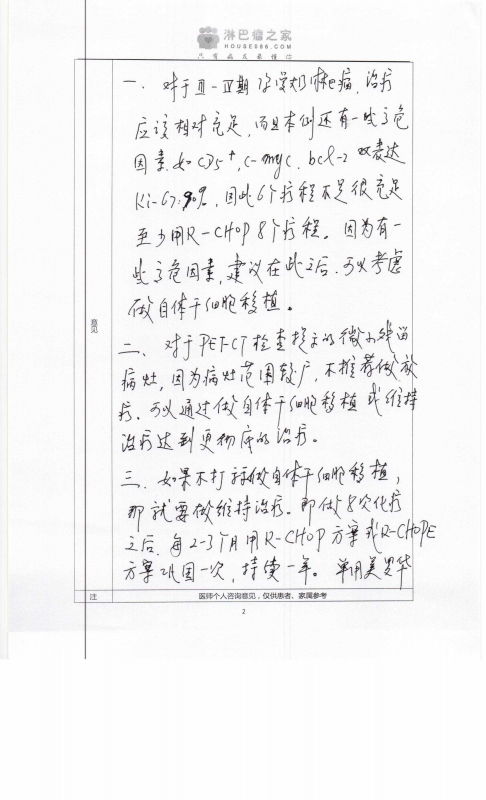 淋巴瘤之家
HOUSE086.COM
只有病友最懂你
一、对于III-IV期弥漫大B淋巴瘤,治疗
应该相对充足,而且本例还有一些高危
因素,如CD5+,c-myc、bcl-2双表达
Ki-67:90%,因此6个疗程不是很充足
至少用R-CHOP 8个疗程。因为有一
些高危因素,建议在此之后,可以考虑
做自体干细胞移植。
二、对于PET-CT检查提示的微小残留
病灶,因为病灶范围较广,不推荐做放
疗。可以通过做自体干细胞移植或维持
治疗达到更彻底的治疗。
三、如果不打算做自体干细胞移植,
那就要做维持治疗。即做8次化疗
之后,每2-3个月用R-CHOP方案或R-CHOPE
方案巩固一次,持续一年。单用美罗华
意见
注
医师个人咨询意见,仅供患者、家属参考
2